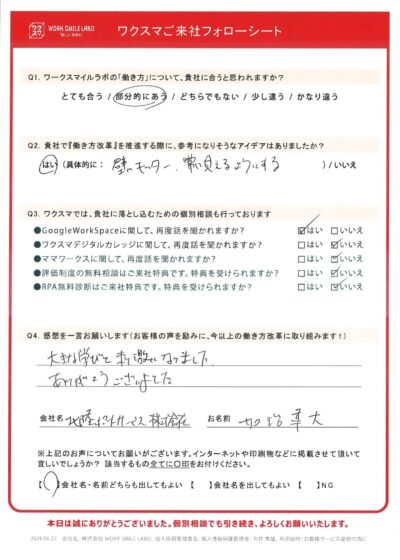 ワクスマ
WORK SMILE LABO
ワクスマご来社フォローシート
Q1. ワークスマイルラボの「働き方」について、貴社に合うと思われますか?
とても合う / 部分的にあう / どちらでもない / 少し違う / かなり違う
Q2. 貴社で『働き方改革』を推進する際に、参考になりそうなアイデアはありましたか?
はい (具体的に: 壁にモニター、常に見えるようにする ) / いいえ
Q3. ワクスマでは、貴社に落とし込むための個別相談も行っております
●GoogleWorkSpaceに関して、再度話を聞かれますか? はい いいえ
●ワクスマデジタルカレッジに関して、再度話を聞かれますか? はい いいえ
●ママワークスに関して、再度話を聞かれますか? はい いいえ
●評価制度の無料相談はご来社特典です。特典を受けられますか? はい いいえ
●RPA無料診断はご来社特典です。特典を受けられますか? はい いいえ
Q4. 感想を一言お願いします(お客様の声を励みに、今以上の働き方改革に取り組みます!)
大きな学びと刺激になりました。
ありがとうございました
会社名 北陸ポートサービス株式会社 お名前
※上記のお声についてお願いがございます。インターネットや印刷物などに掲載させて頂いて
宜しいでしょうか? 該当するもの全てに〇印をお付けください。
【 】会社名・名前どちらも出してもよい 【 】会社名を出してもよい 【 】NG
本日は誠にありがとうございました。個別相談でも引き続き、よろしくお願いいたします。
2024.06.27 会社名:株式会社WORK SMILE LABO、